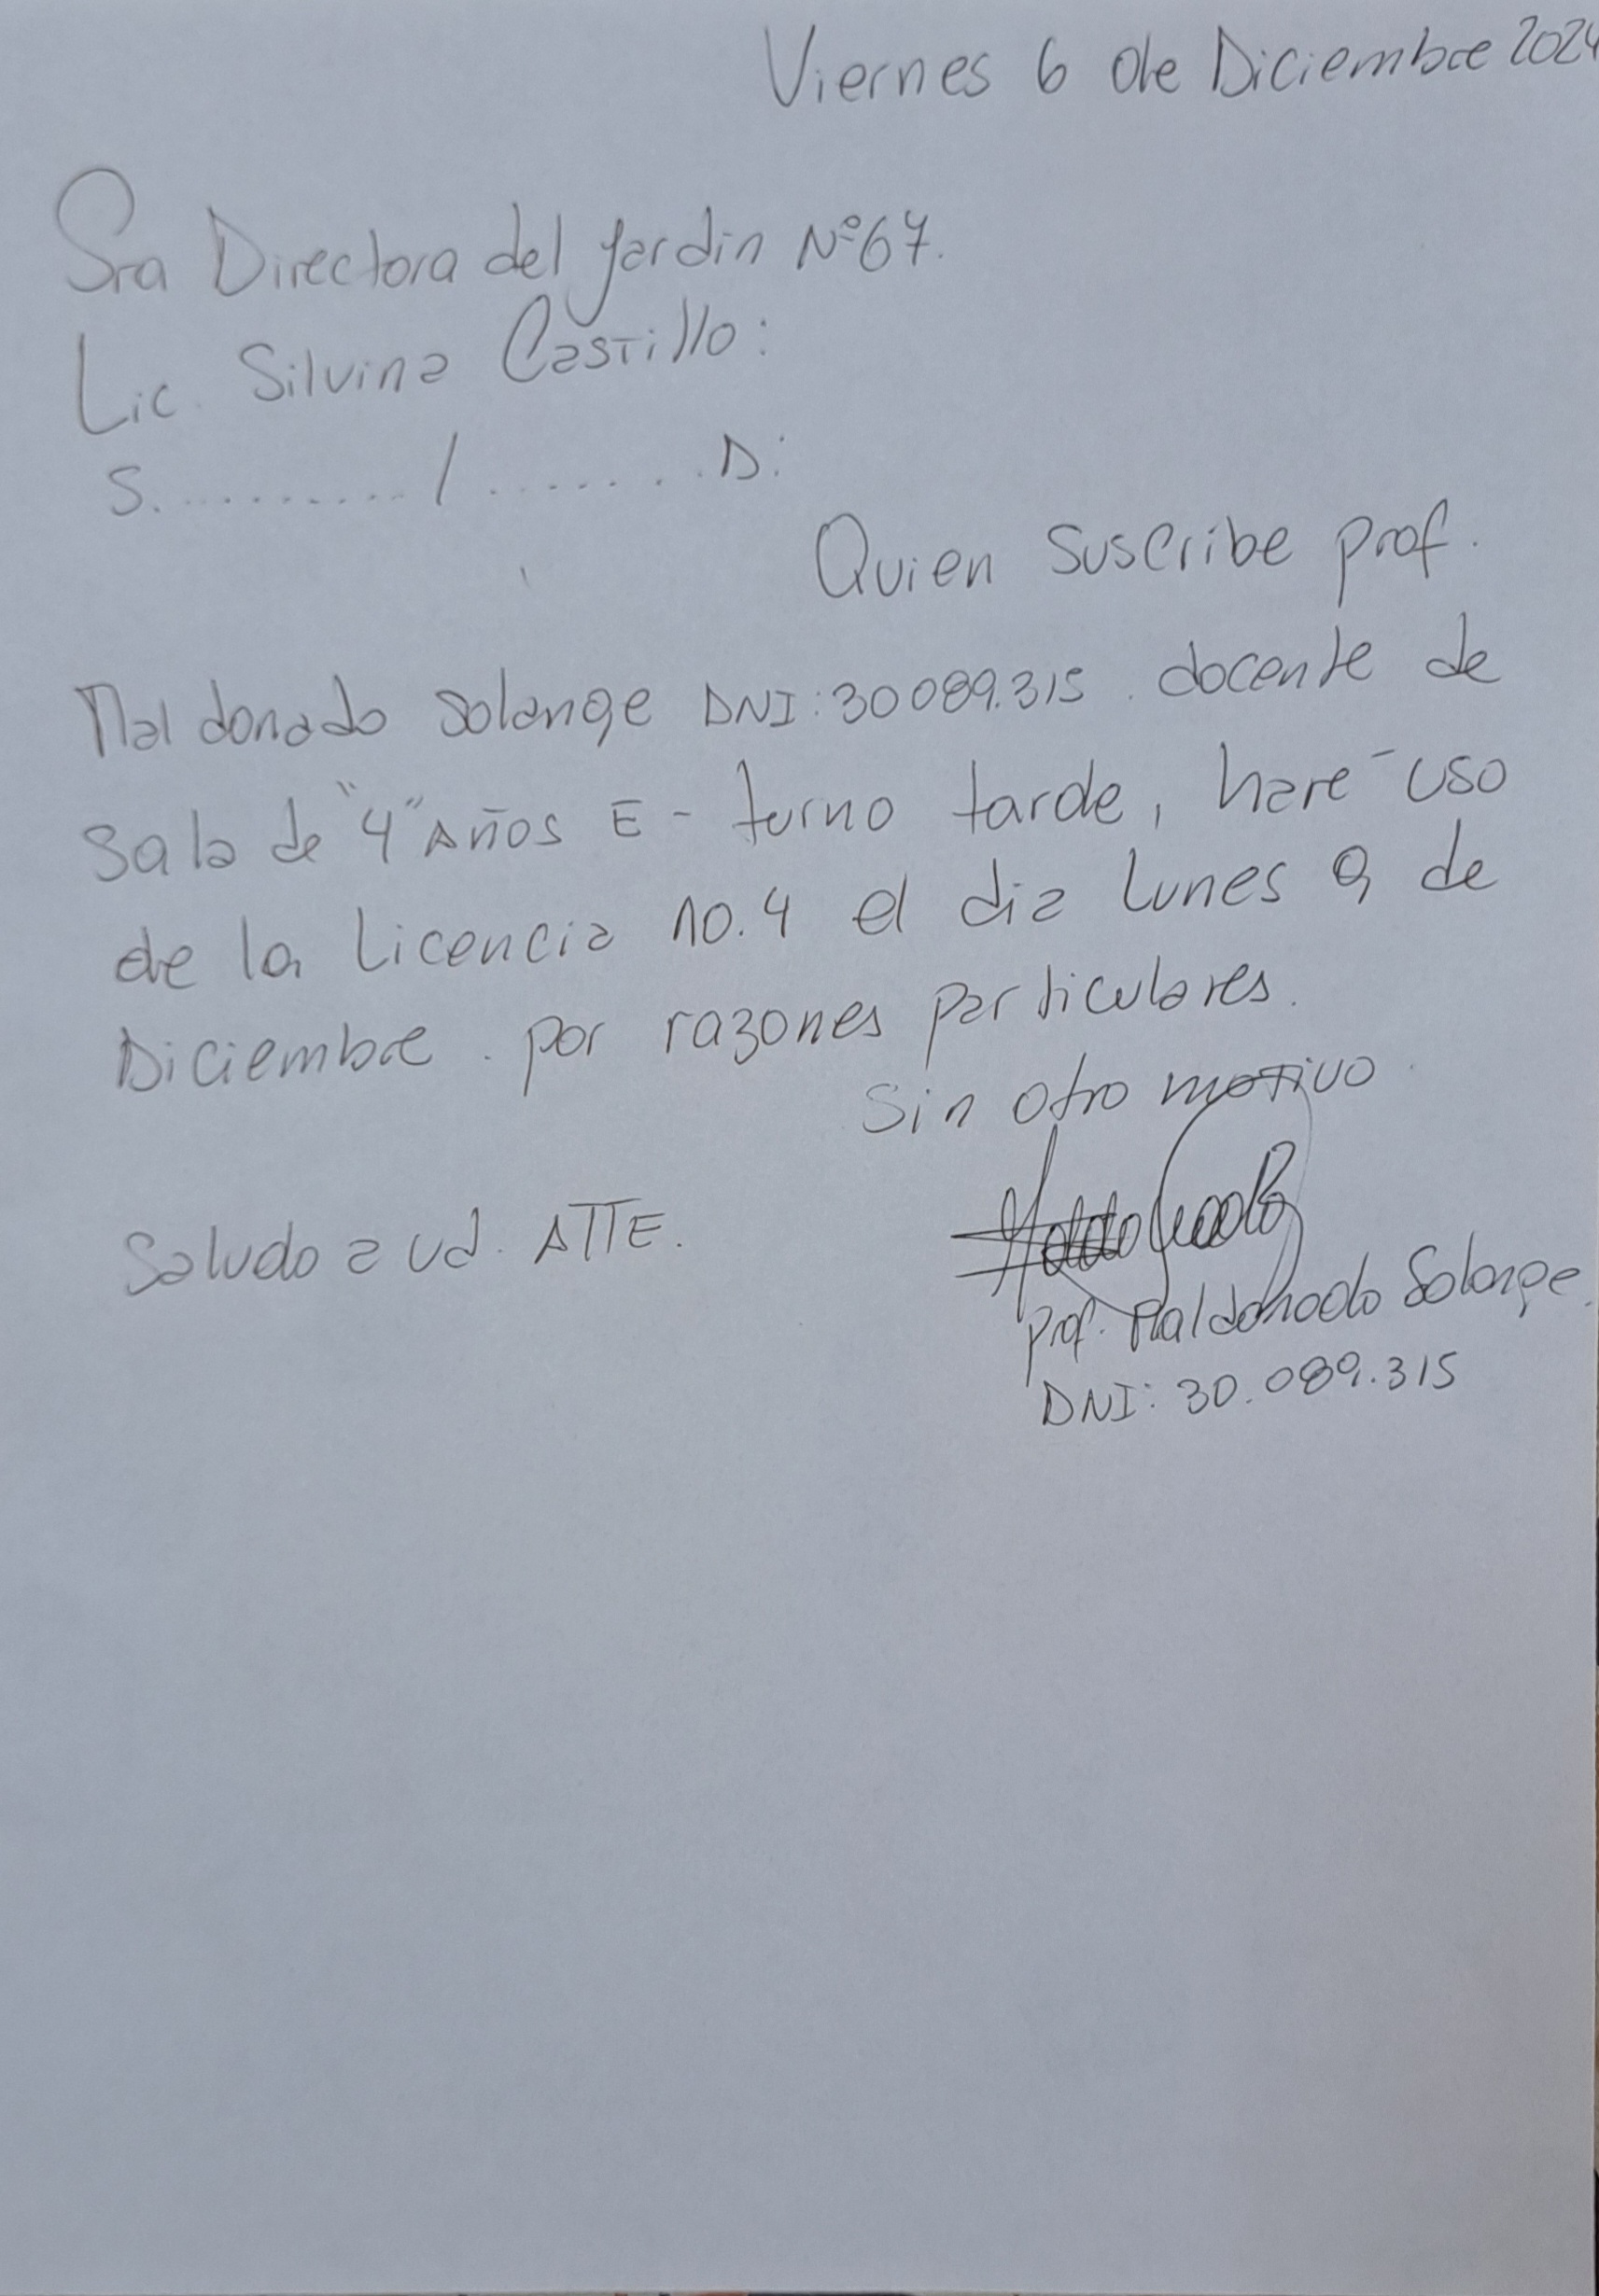 Viernes 6 de Diciembre 2024
Sra Directora del jardin Nº67.
Lic. Silvina Castillo:
S. ........../ ........D:
Quien suscribe prof.
Maldonado Solange DNI:30089.315. docente de
Sala de "4" Años E - turno tarde, hare uso
de la Licencia 10.4 el dia Lunes 9 de
Diciembre. por razones particulares.
Sin otro motivo.
Saludo a Ud. ATTE.
Prof. Maldonado Solange.
DNI: 30.089.315